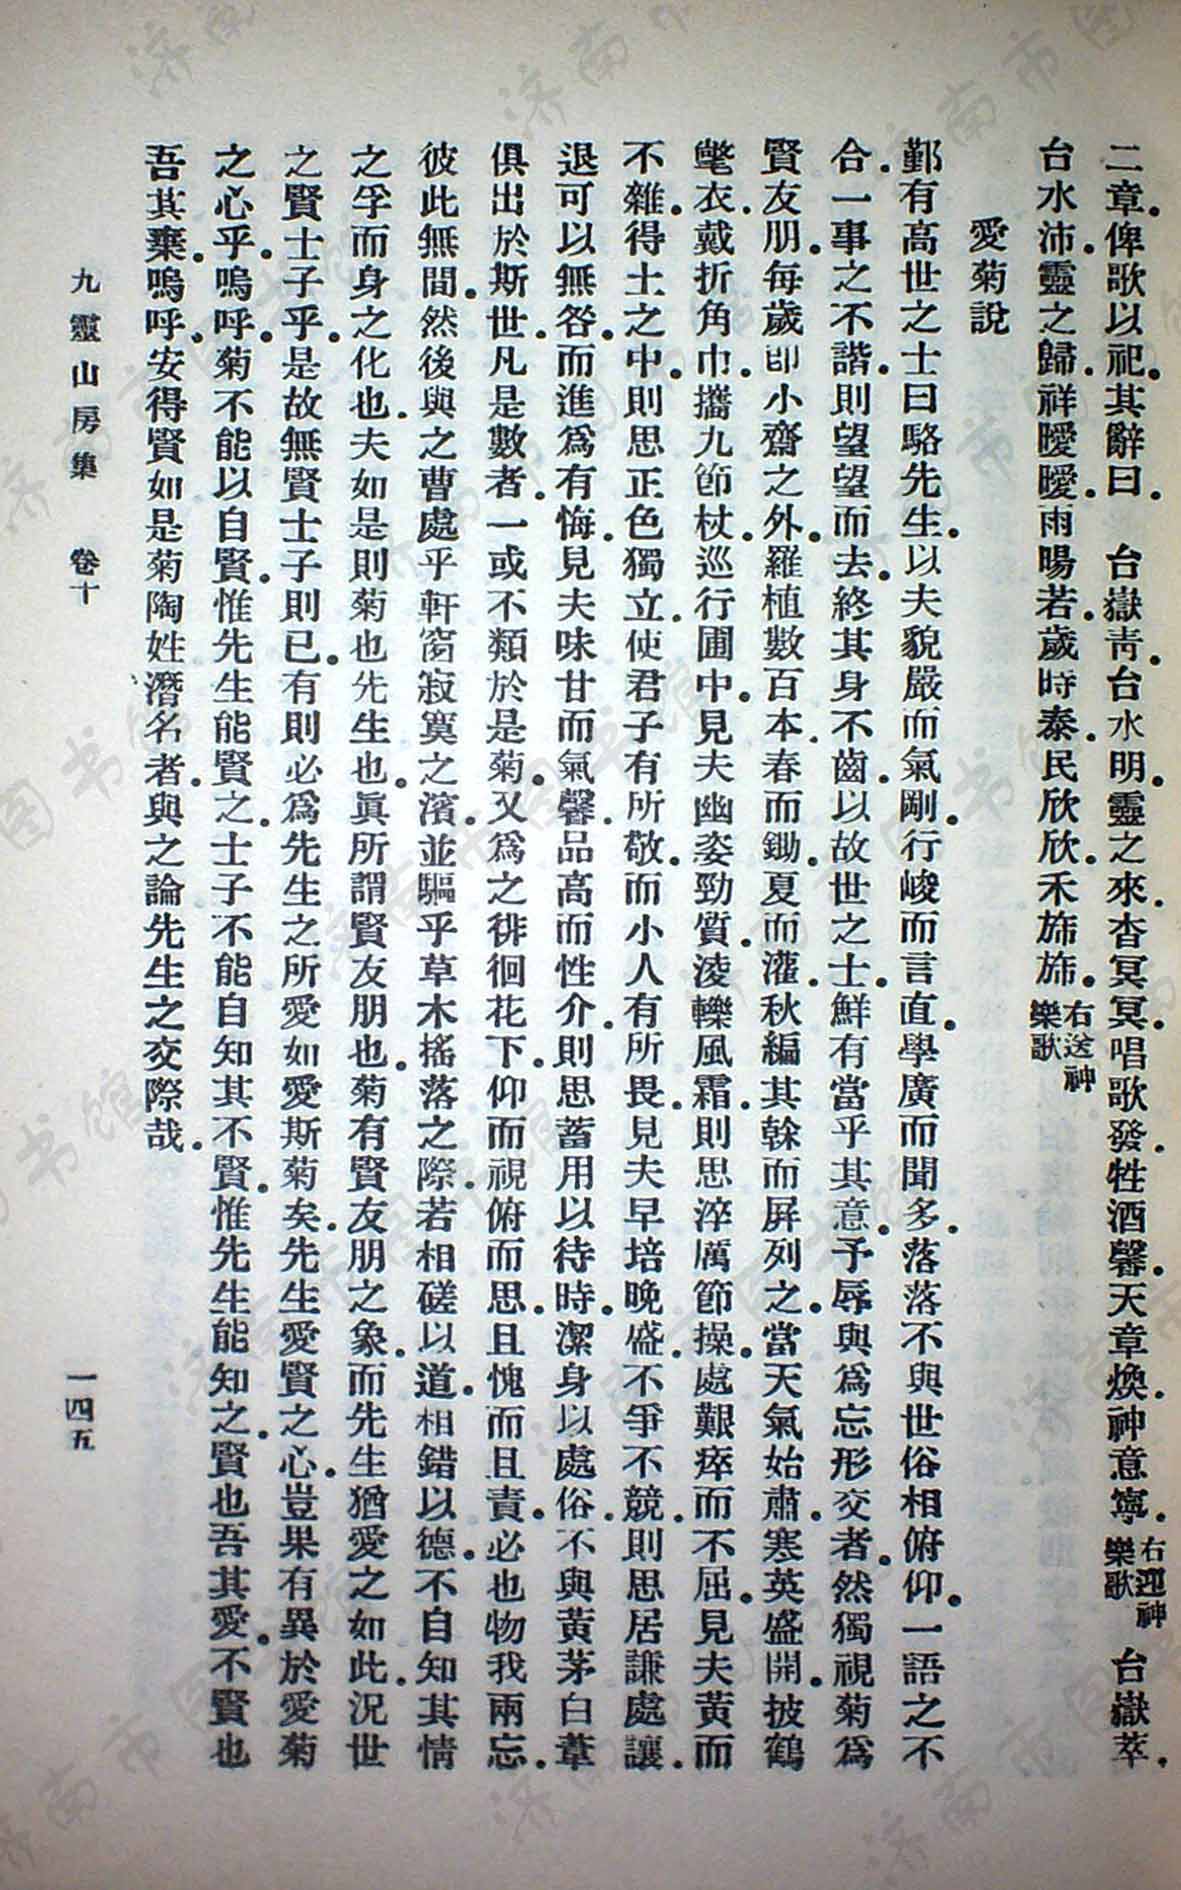 二章。俾歌以祀。其辭曰。　台嶽靑。台水明。靈之來。杳冥冥。唱歌發。牲酒馨。天章煥。神意寧。右迎神樂歌　台嶽萃。
台水沛。靈之歸。祥曖曖。雨暘若。歲時泰。民欣欣。禾旆旆。右送神樂歌
愛菊說
鄞有高世之士曰駱先生。以夫貌嚴而氣剛。行峻而言直。學廣而聞多。落落不與世俗相俯仰。一語之不
合。一事之不諧。則望望而去。終其身不齒。以故世之士。鮮有當乎其意。予辱與爲忘形交者。然獨視菊爲
賢友朋。每歲卽小齋之外。羅植數百本。春而鋤。夏而灌。秋編其榦而屏列之。當天氣始肅。寒英盛開。披鶴
氅衣。戴折角巾。攜九節杖。巡行圃中。見夫幽姿勁質。淩轢風霜。則思淬厲節操。處艱瘁而不屈。見夫黃而
不雜。得土之中。則思正色獨立。使君子有所敬。而小人有所畏。見夫早培晚盛。不爭不競。則思居謙處讓。
退可以無咎。而進爲有悔。見夫味甘而氣馨。品高而性介。則思蓄用以待時。潔身以處俗。不與黃茅白葦
俱出於斯世。凡是數者。一或不類於是菊。又爲之徘徊花下。仰而視俯而思。且愧而且責。必也物我兩忘。
彼此無間。然後與之曹處乎軒窗寂寞之濱。並驅乎草木搖落之際。若相磋以道。相錯以德。不自知其情
之孚而身之化也。夫如是則菊也先生也。眞所謂賢友朋也。菊有賢友朋之象。而先生猶愛之如此。況世
之賢士子乎。是故無賢士子則已。有則必爲先生之所愛如愛斯菊矣。先生愛賢之心。豈果有異於愛菊
之心乎。嗚呼。菊不能以自賢。惟先生能賢之。士子不能自知其不賢。惟先生能知之。賢也吾其愛。不賢也
吾其棄。嗚呼。安得賢如是菊陶姓潛名者。與之論先生之交際哉。
九靈山房集　卷十　一四五
济南市图书馆